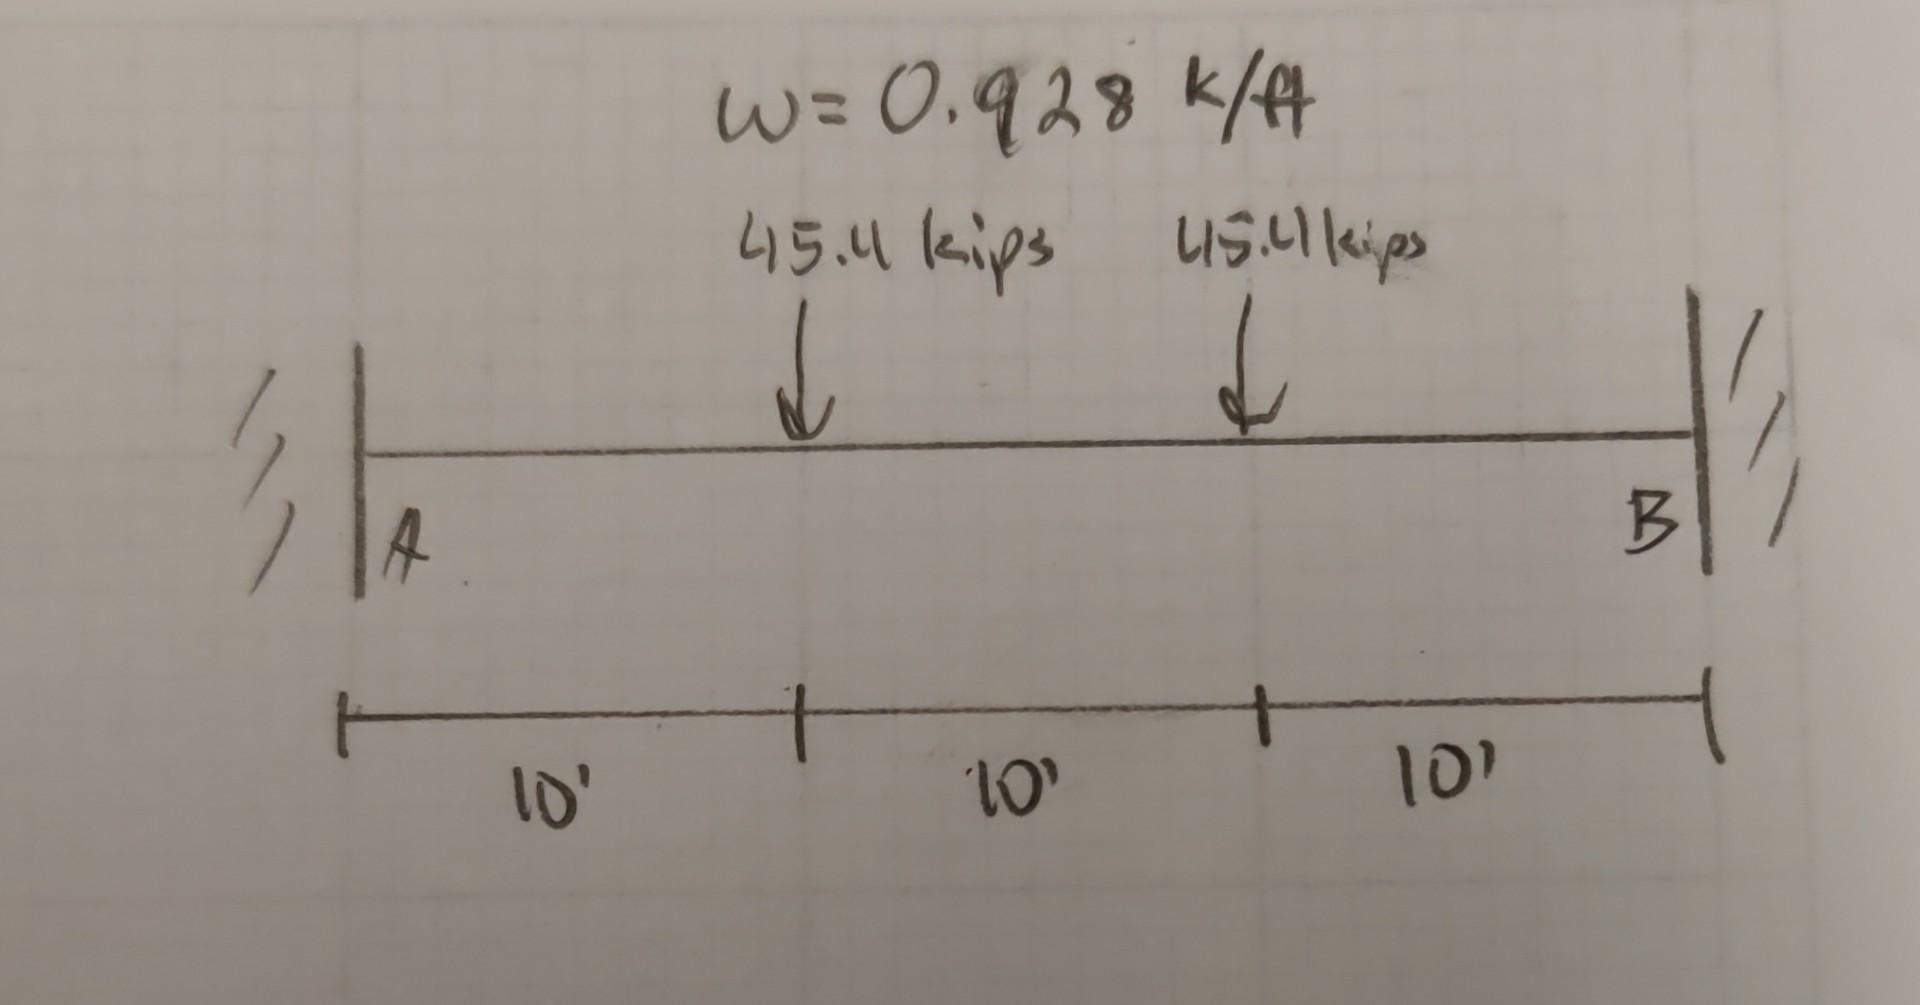 w= 0.928 k/ft
45.4 kips 45.4 kips
A B
10' 10' 10'